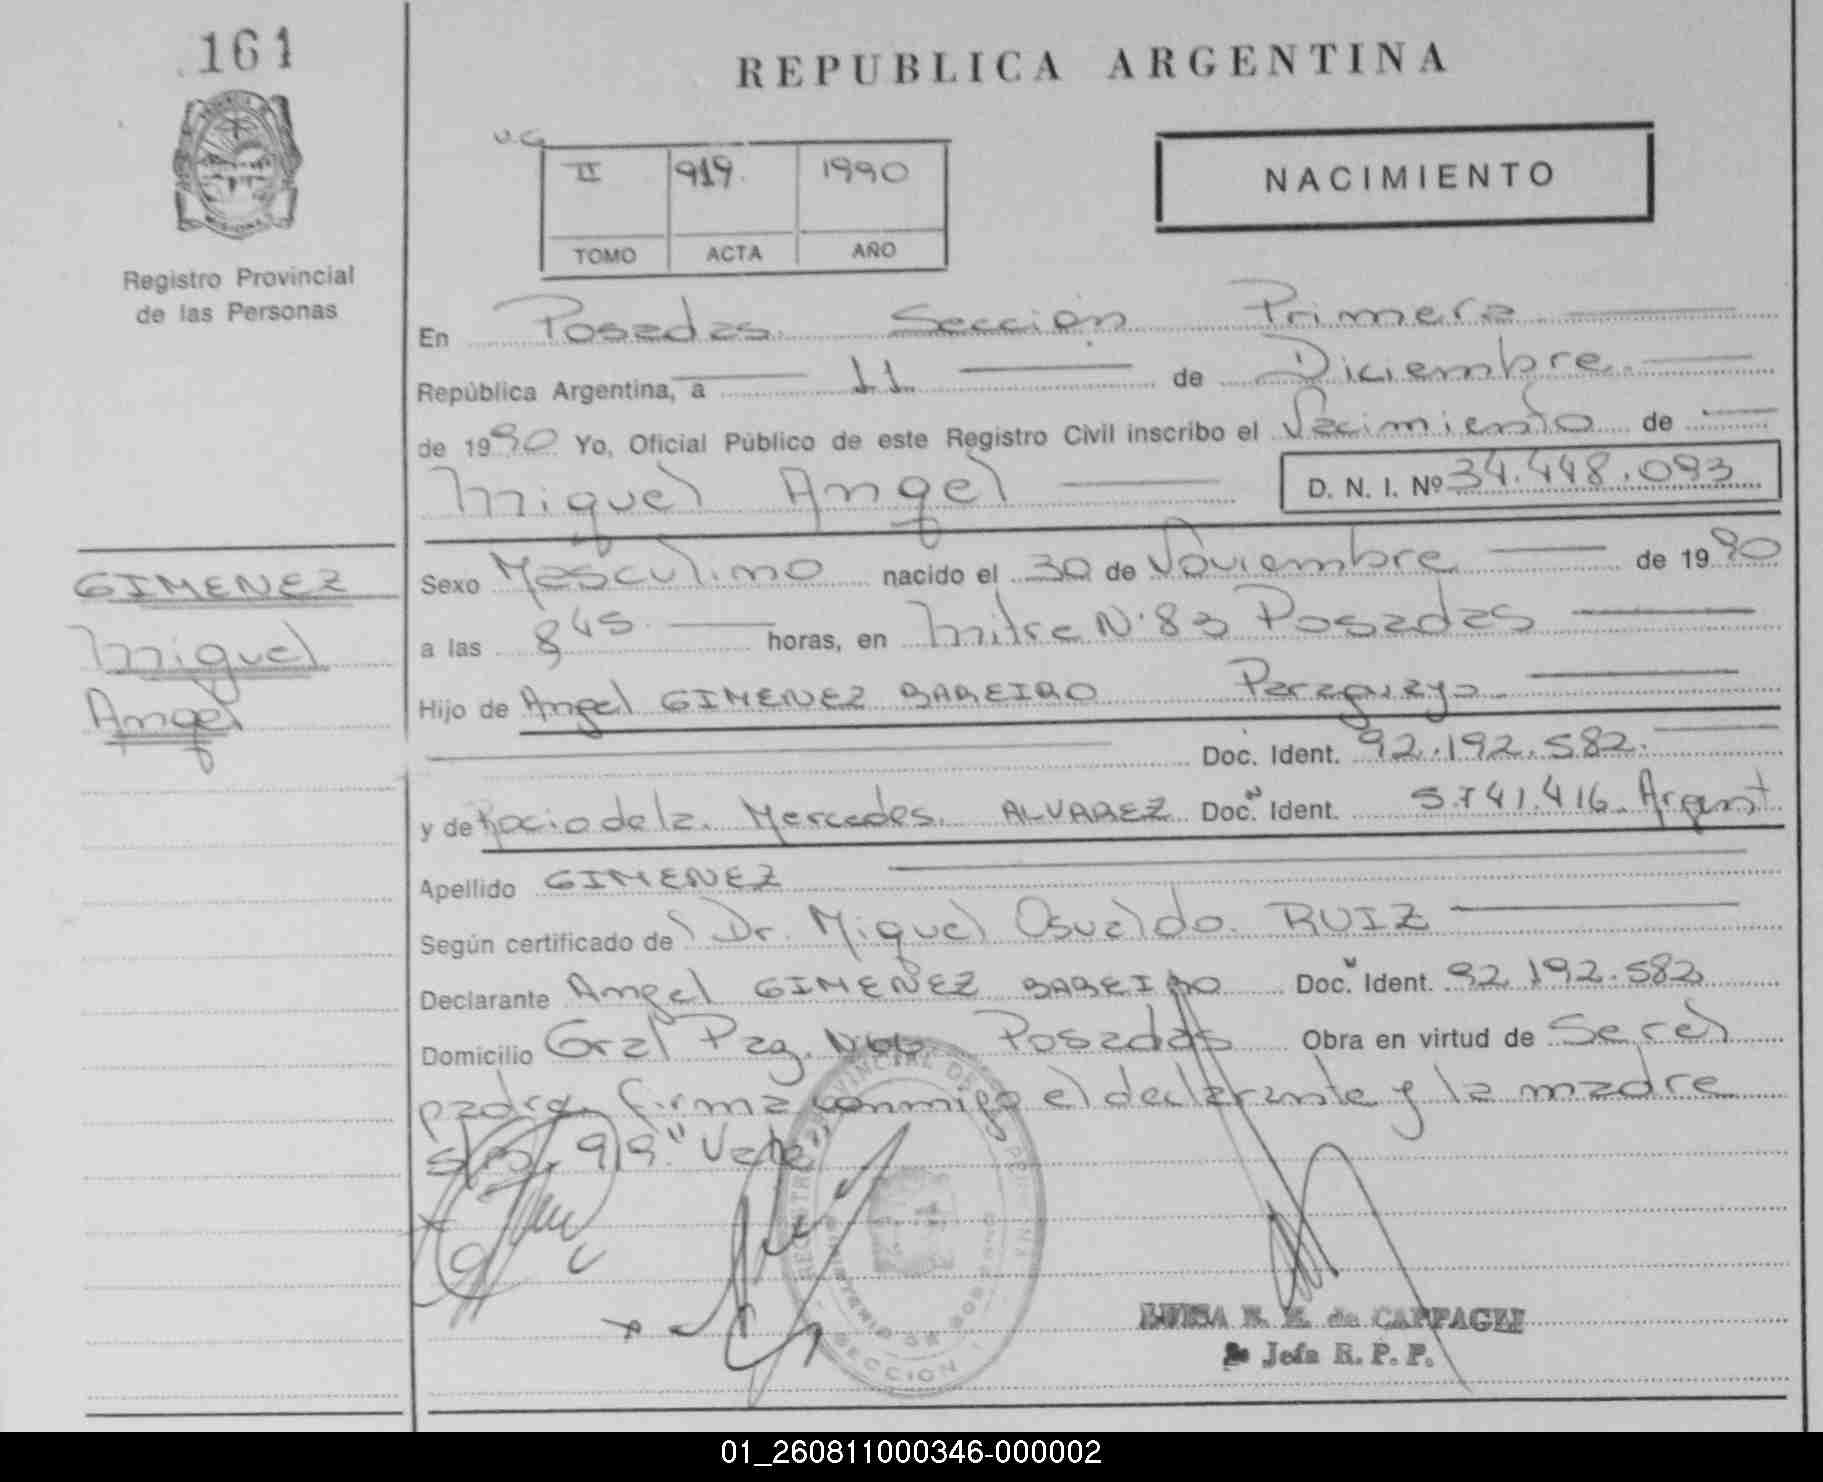 161
REPUBLICA ARGENTINA
Registro Provincial
de las Personas
II 919. 1990
TOMO ACTA AÑO
NACIMIENTO
En Posadas Sección Primera
República Argentina, a 11 de Diciembre
de 1990 Yo, Oficial Público de este Registro Civil inscribo el Nacimiento de
Miguel Angel D. N. I. Nº 34.448.093
GIMENEZ
Miguel
Angel
Sexo Masculino nacido el 30 de Noviembre de 1990
a las 8 45 horas, en Mitre N° 83 Posadas
Hijo de Angel GIMENEZ BAREIRO Paraguayo
Doc. Ident. 92.192.582.
y de Rocio de la Mercedes ALVAREZ Doc. Ident. 5.741.416 Argent
Apellido GIMENEZ
Según certificado de Dr. Miguel Osvaldo RUIZ
Declarante Angel GIMENEZ BAREIRO Doc. Ident. 92.192.582
Domicilio Gral Paz Posadas Obra en virtud de Ser el
padre, firma conmigo el declarante y la madre
919 "Vale"
REGISTRO PROVINCIAL DE LAS PERSONAS
MINISTERIO DE GOBIERNO
SECCION 1
LUISA de
Jefa R. P. P.
01_260811000346-000002